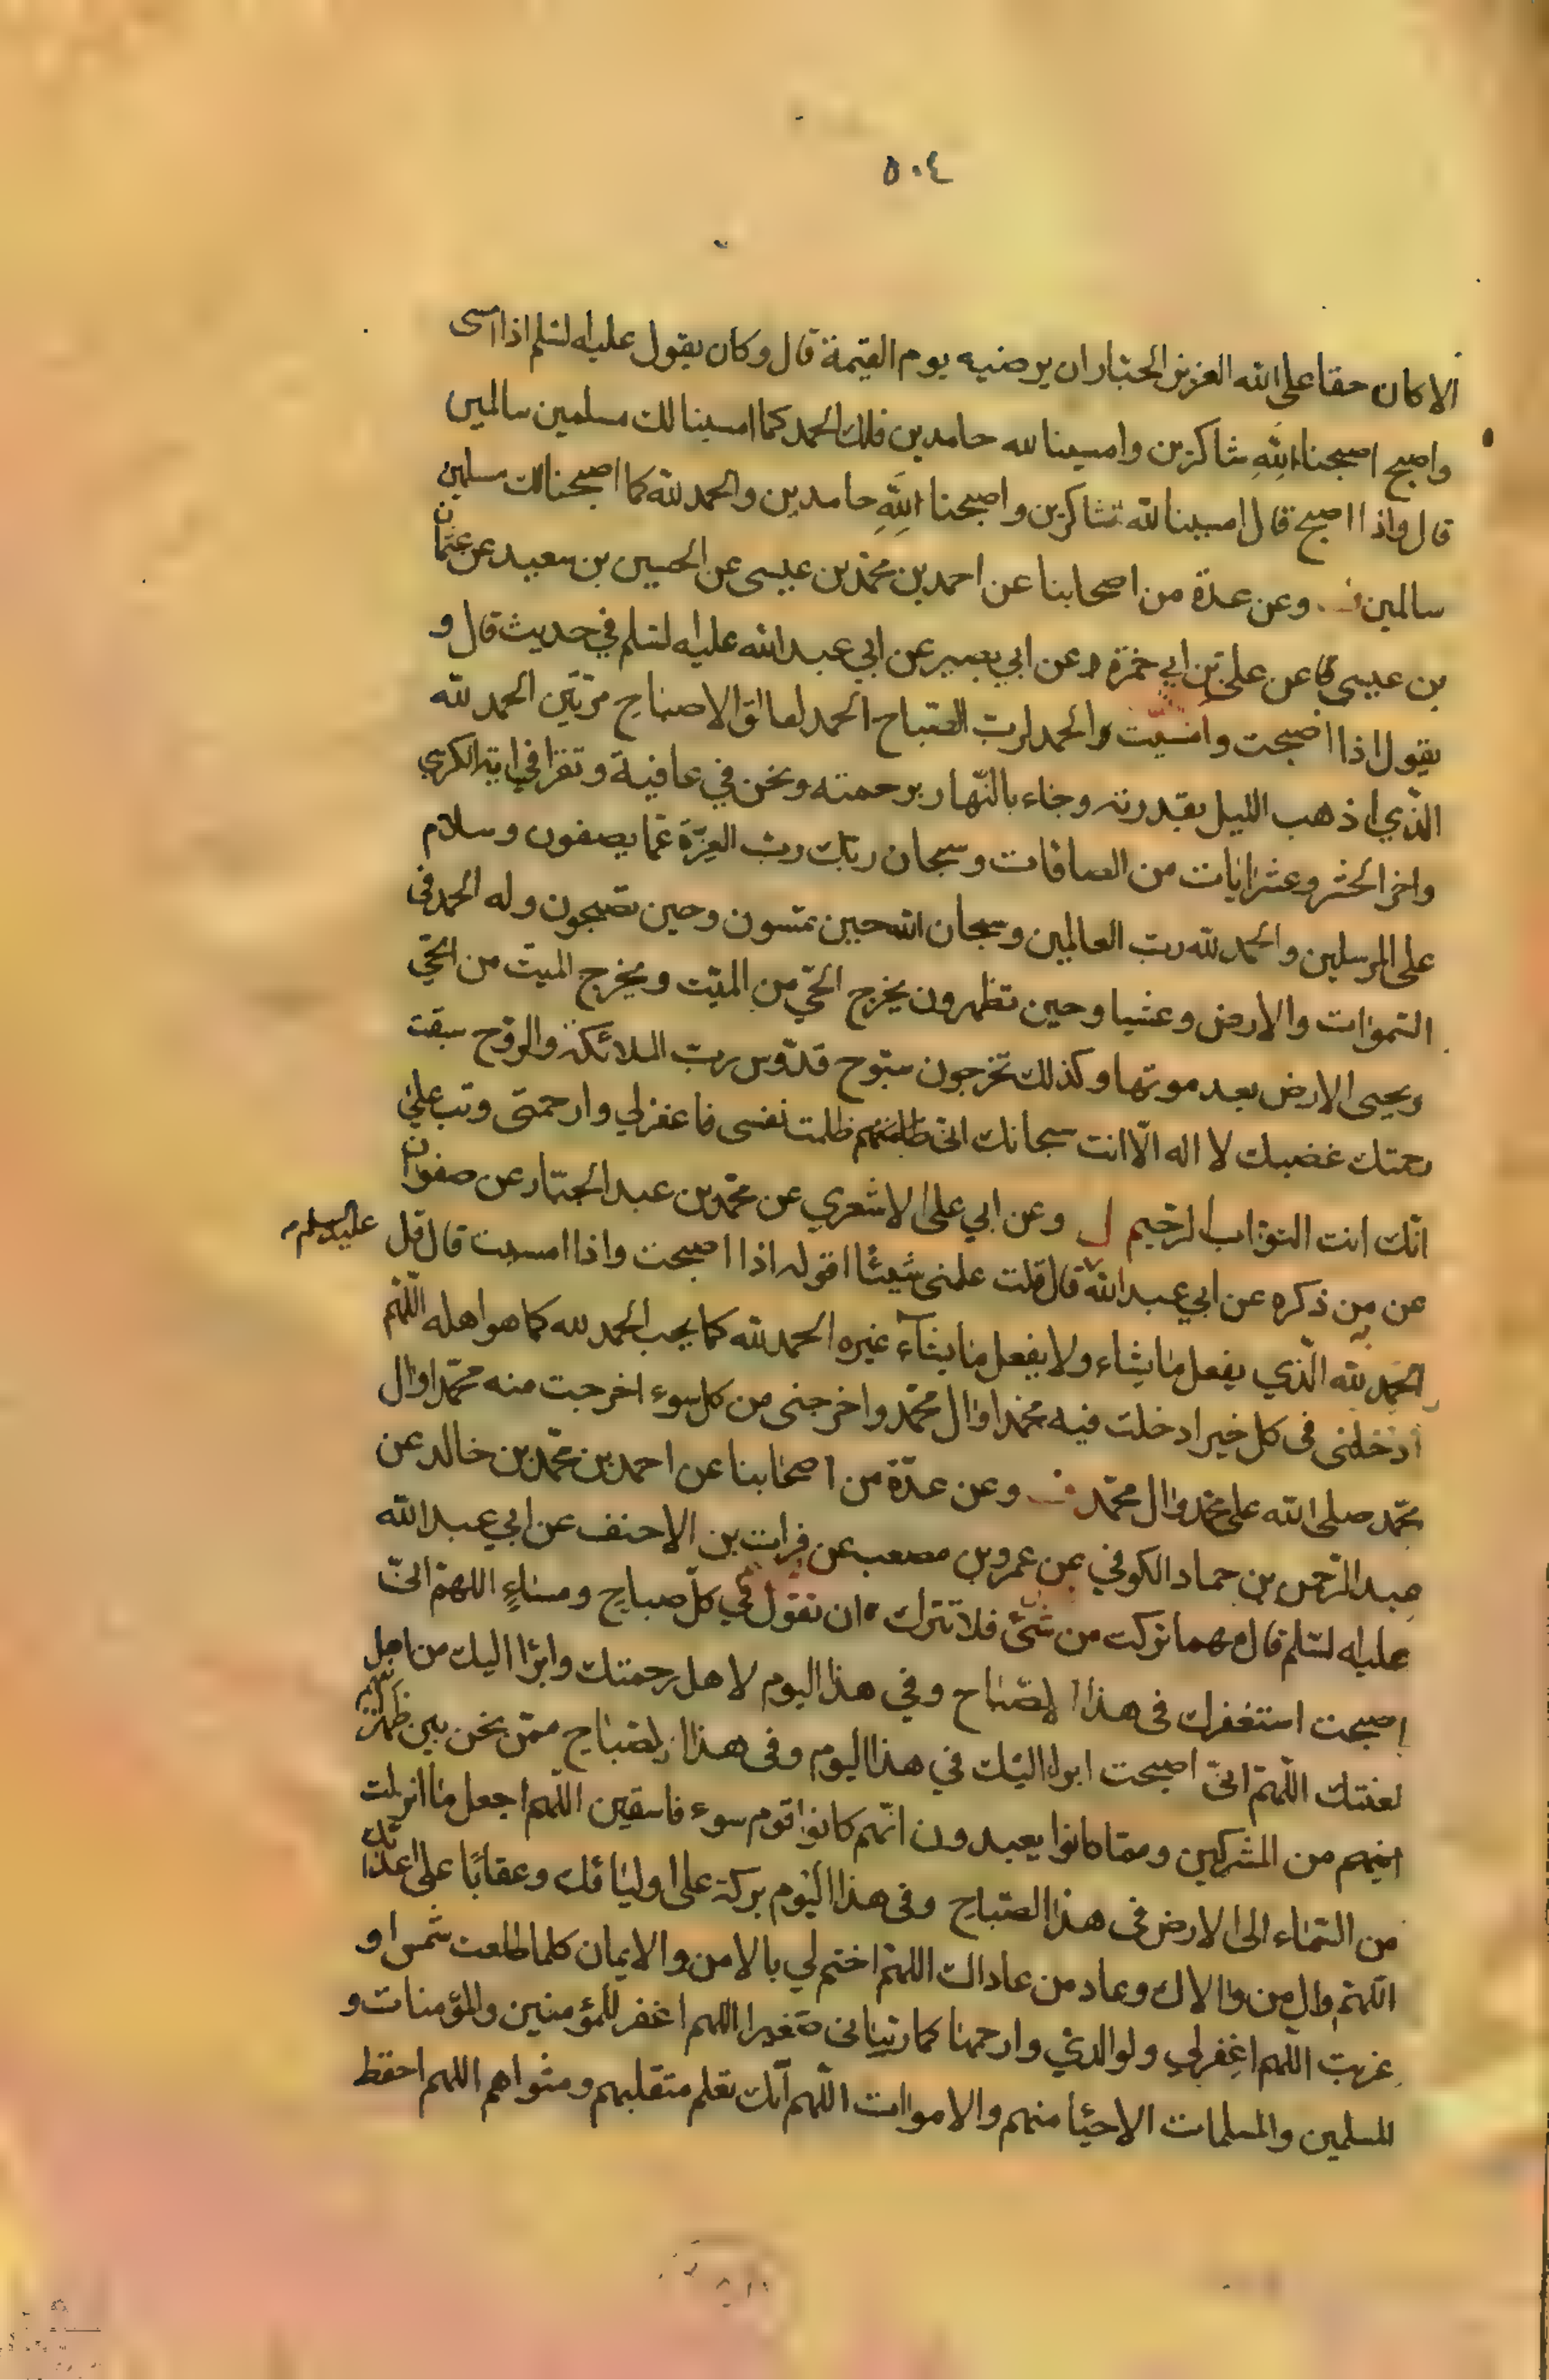 ٥٠٤
الا كان حقا على الله العزيز الجبار ان يرضيه يوم القيمة قال وكان يقول عليه السلم اذا امسى
واصبح اصبحنا لله شاكرين وامسينا لله حامدين فلك الحمد كما امسينا لك مسلمين سالمين
قال واذا اصبح قال امسينا لله شاكرين واصبحنا لله حامدين والحمد لله كما اصبحنا لك مسلمين
سالمين وعن عدة من اصحابنا عن احمد بن محمد بن عيسى عن الحسين بن سعيد عن عثمان
بن عيسى عن على بن ابي حمزة عن ابي بصير عن ابي عبد الله عليه السلم في حديث قال و
يقول اذا اصبحت وامسيت والحمد لرب الصباح الحمد لفالق الاصباح مرتين الحمد لله
الذي اذهب الليل بقدرته وجاء بالنهار برحمته ونحن في عافية وتقرا اية الكرسي
واخر الحشر وعشر ايات من الصافات وسبحان ربك رب العزة عما يصفون وسلام
على المرسلين والحمد لله رب العالمين وسبحان الله حين تمسون وحين تصبحون وله الحمد في
السموات والارض وعشيا وحين تظهرون يخرج الحي من الميت ويخرج الميت من الحي
ويحيى الارض بعد موتها وكذلك تخرجون سبوح قدوس رب الملائكة والروح سبقت
رحمتك غضبك لا اله الا انت سبحانك انى ظلمت نفسى فاغفر لي وارحمنى وتب علي
انك انت التواب الرحيم وعن ابي على الاشعري عن محمد بن عبد الجبار عن صفوان
عن من ذكره عن ابي عبد الله قال قلت علمنى شيئا اقوله اذا اصبحت واذا امسيت قال قل عليه السلم
الحمد لله الذي يفعل ما يشاء ولا يفعل ما يشآء غيره الحمد لله كما يحب الحمد لله كما هو اهله اللهم
ادخلنى فى كل خير ادخلت فيه محمدا وال محمد واخرجنى من كل سوء اخرجت منه محمدا وال
محمد صلى الله على محمد وال محمد وعن عدة من اصحابنا عن احمد بن محمد بن خالد عن
عبد الرحمن بن حماد الكوفي عن عمرو بن مصعب عن فرات بن الاحنف عن ابي عبد الله
عليه السلم قال مهما تركت من شئ فلا تترك ان تقول في كل صباح ومساء اللهم انى
اصبحت استغفرك فى هذا الصباح وفي هذا اليوم لاهل رحمتك وابرا اليك من اهل
لعنتك اللهم انى اصبحت ابرا اليك في هذا اليوم وفى هذا الصباح ممن نحن بين ظهرانيهم
من المشركين ومما كانوا يعبدون انهم كانوا قوم سوء فاسقين اللهم اجعل ما انزلت
من السماء الى الارض فى هذا الصباح وفى هذا اليوم بركة على اوليائك وعقابا على اعدائك
اللهم وال من والاك وعاد من عاداك اللهم اختم لي بالامن والايمان كلما طلعت شمس او
غربت اللهم اغفر لي ولوالدي وارحمهما كما ربيانى صغيرا اللهم اغفر للمؤمنين والمؤمنات و
المسلمين والمسلمات الاحيا منهم والاموات اللهم انك تعلم متقلبهم ومثواهم اللهم احفظ